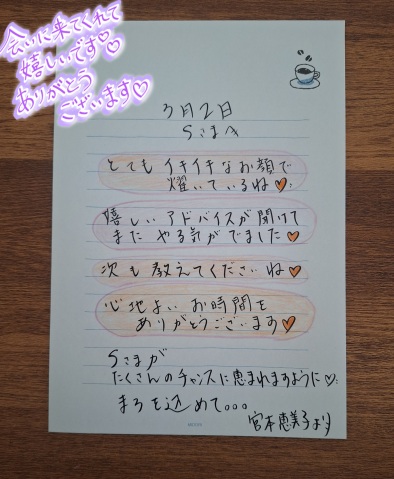 会いに来てくれて
嬉しいです♡♡
ありがとう
ございます♡
3月2日
Sさまへ
とてもイキイキなお顔で
燿いているね♡
嬉しいアドバイスが聞けて
また やる気がでました♡
次も教えてくださいね♡
心地よいお時間を
ありがとうございます♡
Sさまが
たくさんのチャンスに恵まれますように♡
まろを込めて。。。
宮本恵美子より